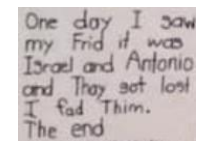 One day I saw
my Frid it was
Israel and Antonio
and Thay got lost
I fad Thim.
The end